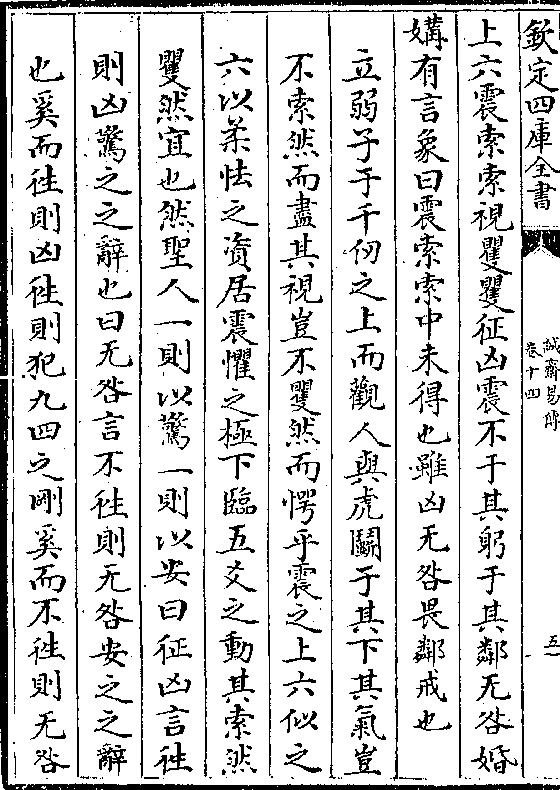 欽定四庫全書
誠齋易傳
卷十四
五
上六震索索視矍矍征凶震不于其躬于其鄰无咎婚
媾有言象曰震索索中未得也雖凶无咎畏鄰戒也
立弱子于千仞之上而觀人與虎鬭于其下其氣豈
不索然而盡其視豈不矍然而愕乎震之上六似之
六以柔怯之資居震懼之極下臨五爻之動其索然
矍然宜也然聖人一則以驚一則以安曰征凶言徃
則凶驚之之辭也曰无咎言不徃則无咎安之之辭
也奚而徃則凶徃則犯九四之剛奚而不徃則无咎